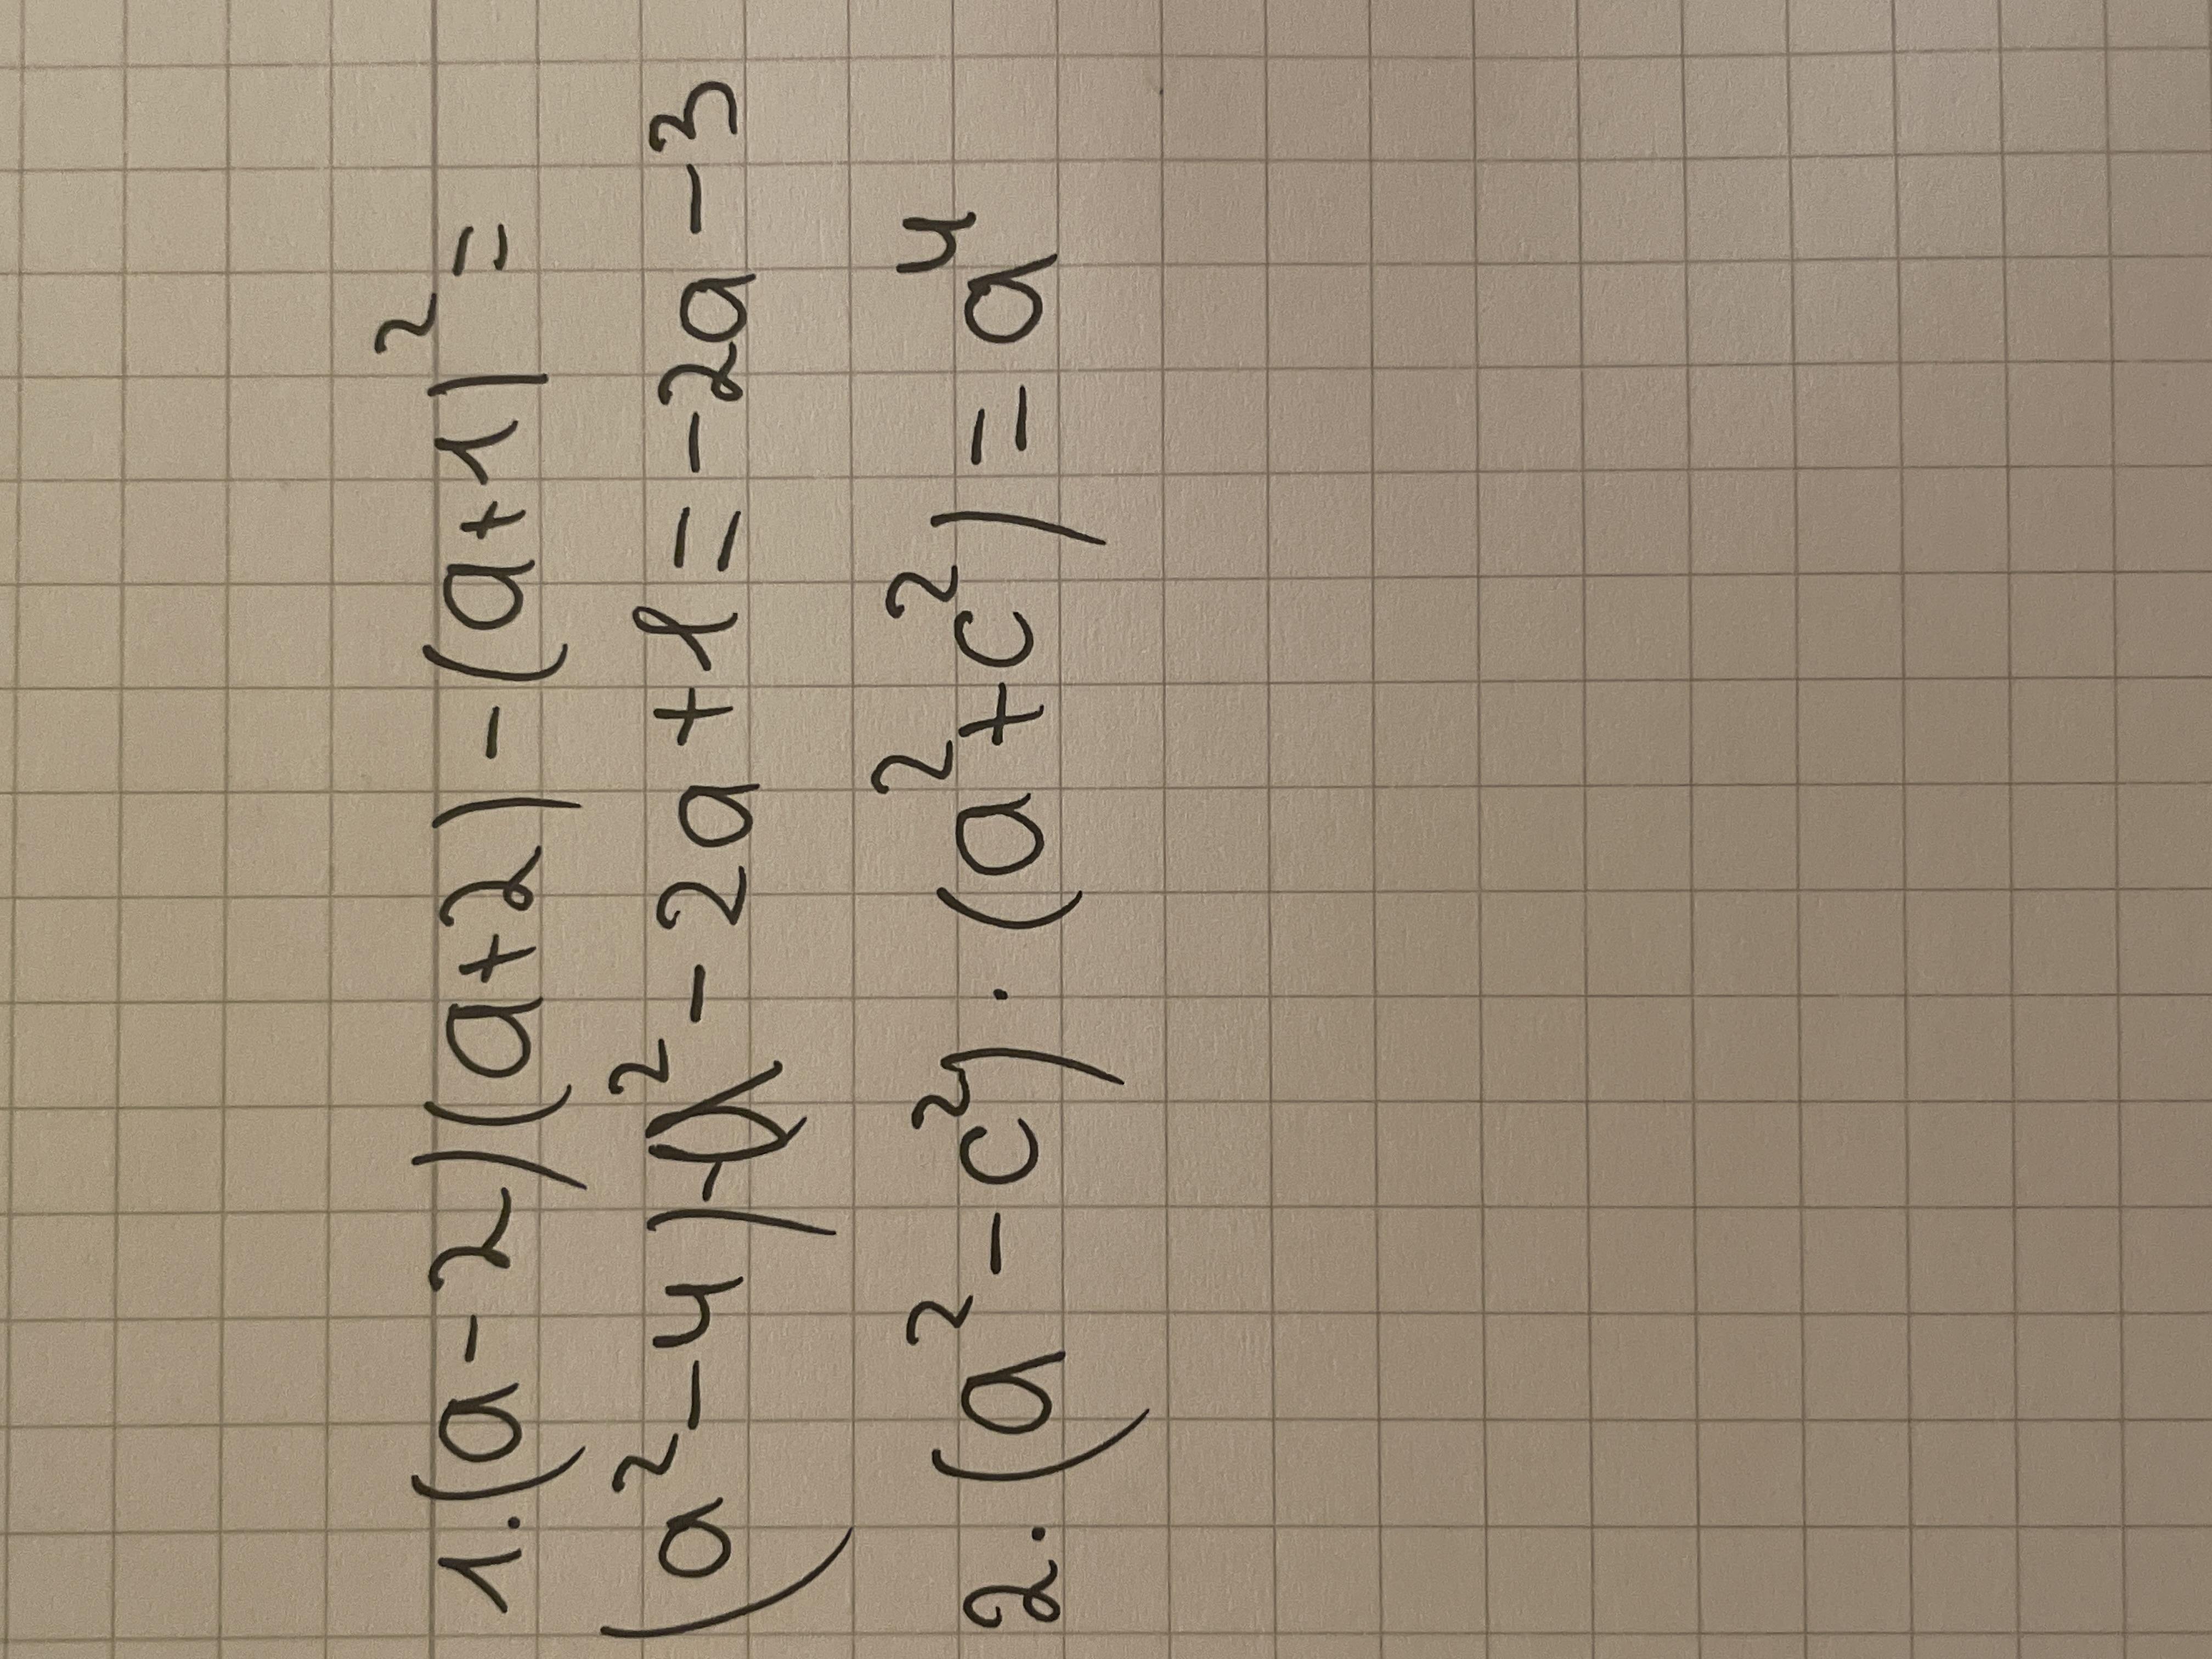 1. (a-2)(a+2)-(a+1)² =
(a²-4)-a²-2a+1=-2a-3
2. (a²-c²)·(a²+c²)=a⁴